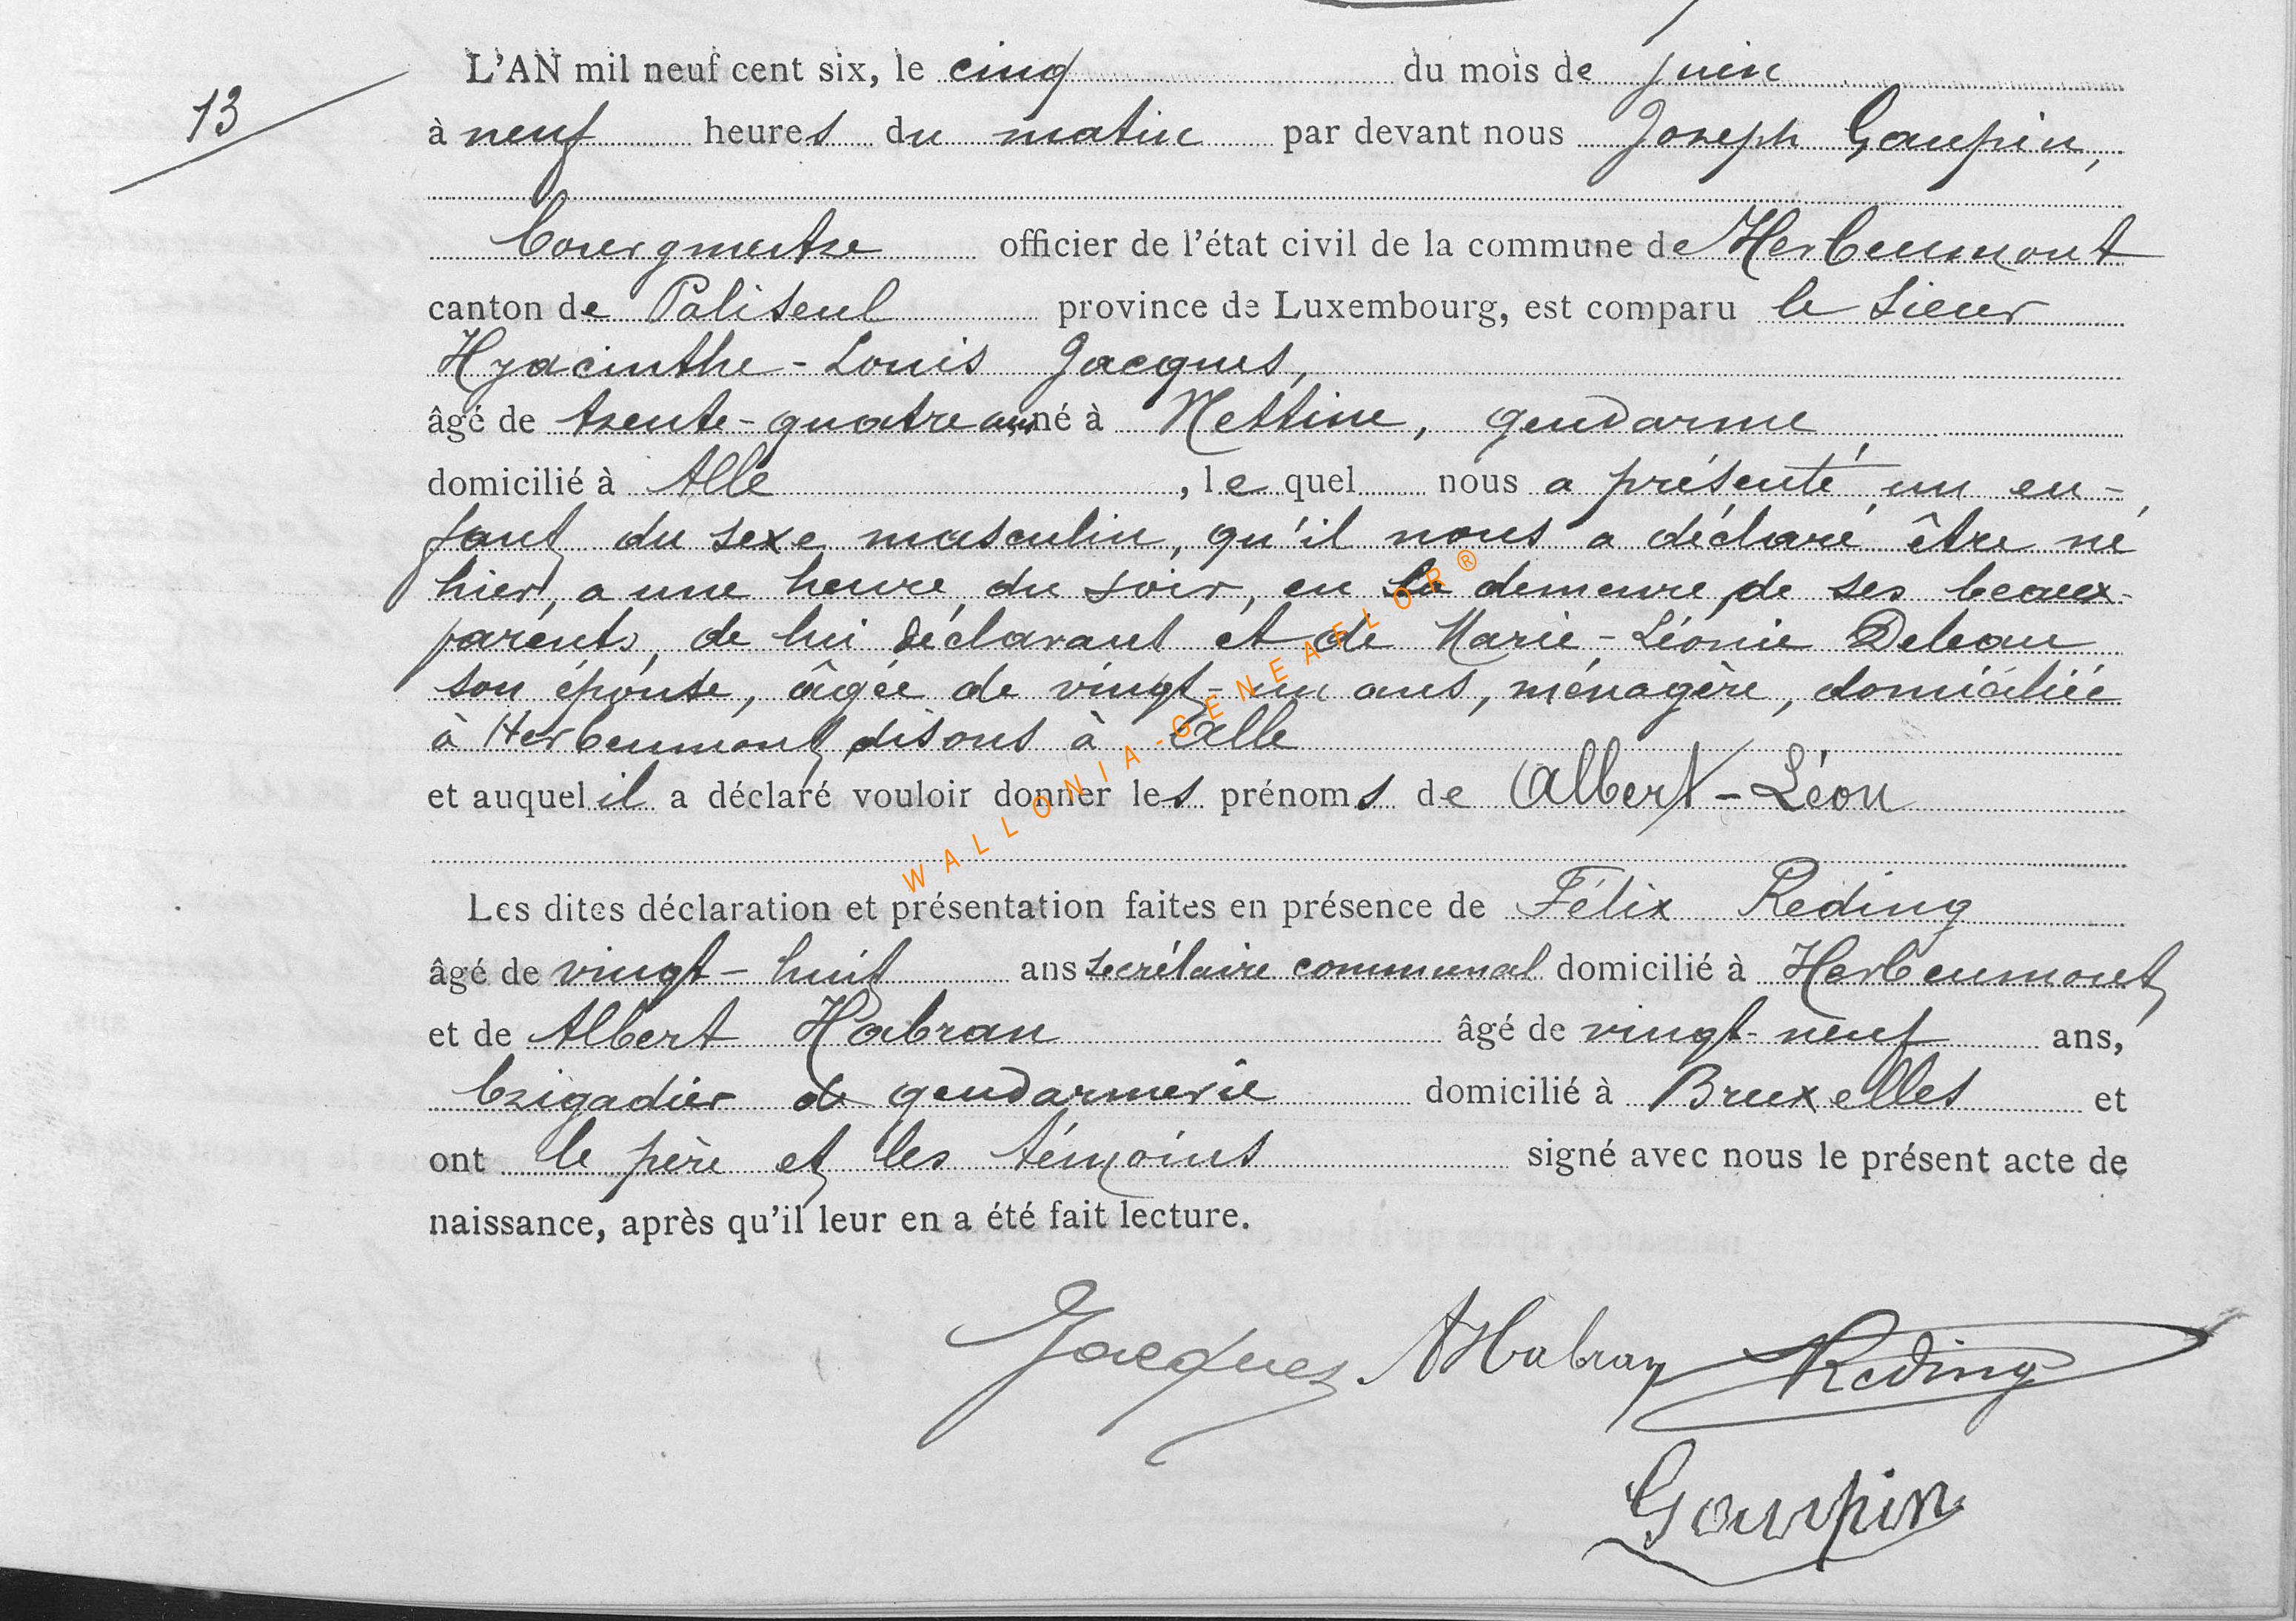 13
L'AN mil neuf cent six, le cinq du mois de juin
à neuf heures du matin par devant nous Joseph Gaupin,
bourgmestre officier de l'état civil de la commune de Herbeumont
canton de Paliseul province de Luxembourg, est comparu le sieur
Hyacinthe-Louis Jacques,
âgé de trente-quatre ans né à Nettine, gendarme,
domicilié à Alle, lequel nous a présenté un en-
fant du sexe masculin, qu'il nous a déclaré être né
hier, a une heure du soir, en la demeure de ses beaux-
parents, de lui déclarant et de Marie-Léonie Deleau
son épouse, âgée de vingt-un ans, ménagère, domiciliée
à Herbeumont disons à Alle
et auquel il a déclaré vouloir donner les prénoms de Albert-Léon
Les dites déclaration et présentation faites en présence de Félix Reding
âgé de vingt-huit ans secrétaire communal domicilié à Herbeumont
et de Albert Habran âgé de vingt-neuf ans,
brigadier de gendarmerie domicilié à Bruxelles et
ont le père et les témoins signé avec nous le présent acte de
naissance, après qu'il leur en a été fait lecture.
Jacques. AHabran Reding
Gaupin
WALLONIA-GENEAFLOR®